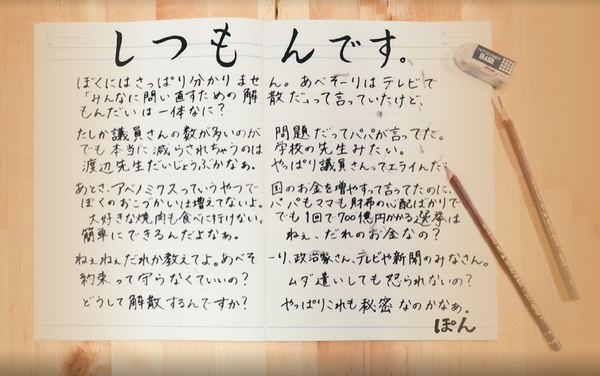 しつもんです。
ぼくにはさっぱり分かりません。あべそーりはテレビで
「みんなに問い直すための解散だ」って言っていたけど、
もんだいは一体なに？
たしか議員さんの数が多いのが問題だってパパが言ってた。
でも本当に減らされちゃうのは学校の先生みたい。
渡辺先生だいじょうぶかなぁ。 やっぱり議員さんってエライんだ
あとさ、アベノミクスっていうやつで国のお金を増やすって言ってたのに、
ぼくのおこづかいは増えてないよ。パパもママも財布の心配ばかりで
大好きな焼肉も食べに行けない。でも1回で700億円かかる選挙は
簡単にできるんだよなぁ。 ねぇ、だれのお金なの？
ねぇねぇだれか教えてよ。あべそーり、政治家さん、テレビや新聞のみなさん。
約束って守らなくていいの？ ムダ遣いしても怒られないの？
どうして解散するんですか？ やっぱりこれも秘密なのかなぁ。
ぽん